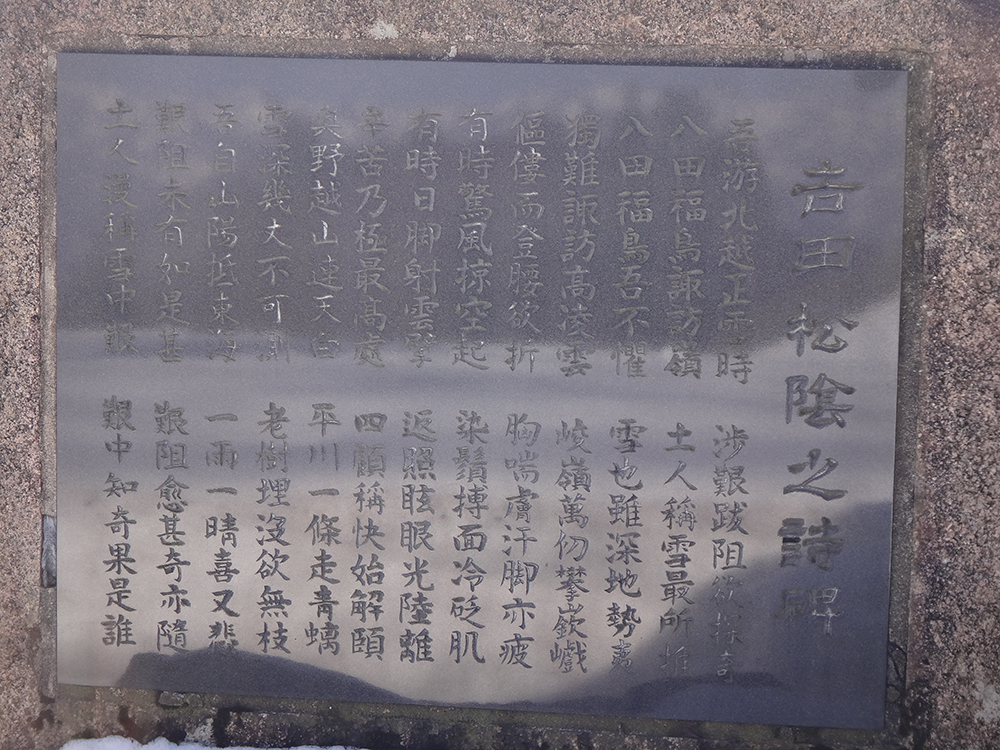 吉田松陰之詩碑
吾游北越正雪時 涉艱跋阻欲探奇
八田福島諏訪嶺 土人稱雪最所堆
八田福島吾不懼 雪也雖深地勢夷
獨難諏訪高凌雲 峻嶺萬仞攀嶔巇
傴僂而登腰欲折 胸喘膚汗脚亦疲
有時驚風掠空起 染鬚搏面冷砭肌
有時日脚射雲孥 返照眩眼光陸離
辛苦乃極最高處 四顧稱快始解頤
奥野越山連天白 平川一條走青螭
雪深幾丈不可測 老樹埋沒欲無枝
吾自山陽抵東海 一雨一晴喜又悲
艱阻未有如是甚 艱阻愈甚奇亦隨
土人漫稱雪中艱 艱中知奇果是誰